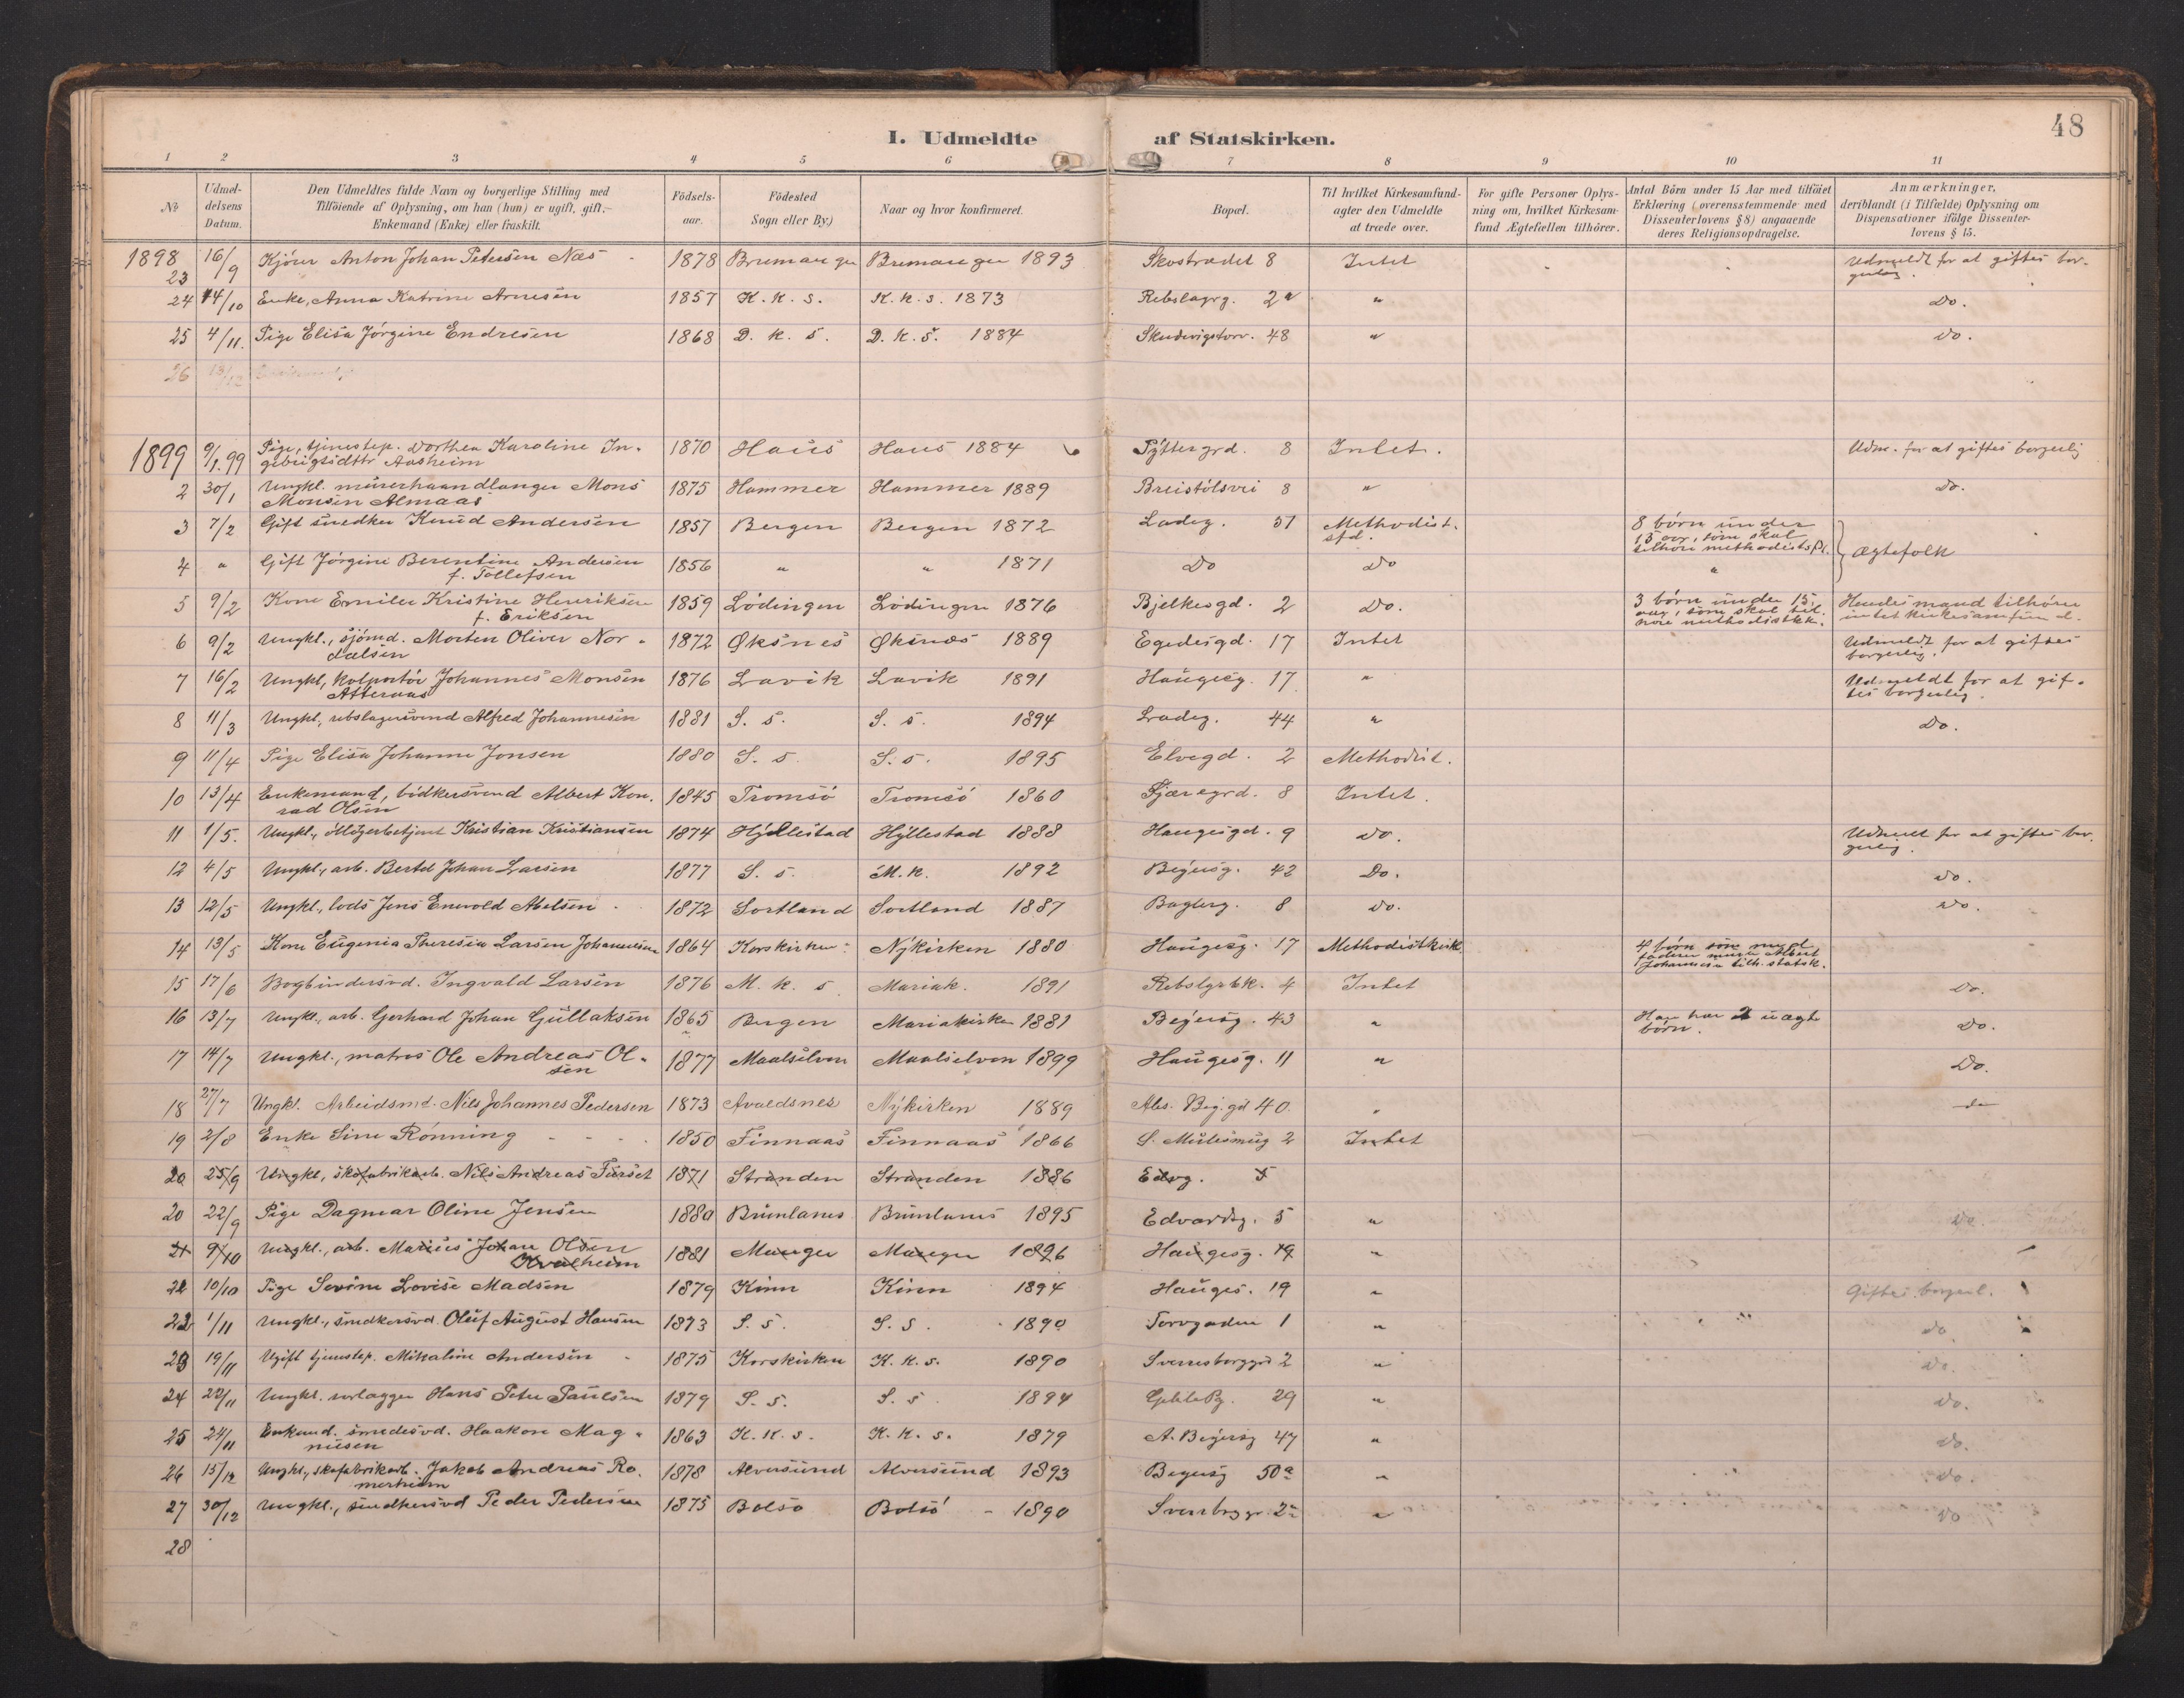 48
I. Udmeldte af Statskirken.
1 2 3 4 5 6 7 8 9 10 11
No
Udmel-
delsens
Datum.
Den Udmeldtes fulde Navn og borgerlige Stilling med
Tilföiende af Oplysning, om han (hun) er ugift, gift,-
Enkemand (Enke) eller fraskilt.
Födsels-
aar.
Födested
Sogn eller By.)
Naar og hvor konfirmeret.
Bopæl.
Til hvilket Kirkesamfund-
agter den Udmeldte
at træde over.
For gifte Personer Oplys-
ning om, hvilket Kirkesam-
fund Ægtefællen tilhörer.
Antal Börn under 15 Aar med tilföiet
Erklæring (overensstemmende med
Dissenterlovens § 8) angaaende
deres Religionsopdragelse.
Anmærkninger,
deriblandt (i Tilfælde) Oplysning om
Dispensationer ifölge Dissenter-
lovens § 15.
1898
23 16/9 Kjörer Anton Johan Petersen Næs 1878 Bremanger Bremanger 1893 Skostrædet 8 Intet Udmeldt for at giftes bor-
gerlig.
24 14/10 Enke, Anna Katrine Arnesen 1857 K. k. s. K. k. s. 1873 Rebslagrg. 2a " Do.
25 4/11. Pige Elisa Jörgine Endresen 1868 D. k. s. D. k. s. 1884 Skudevigstorv. 48 " do.
26 13/12
1899 9/1.99 Pige, tjenestep. Dorthea Karoline In-
gebrigtsdttr Aasheim 1870 Haus Haus 1884 Pyttergrd. 8 Intet. Udm. for at giftes borgerlig
2 30/1 Ungkl. murerhaandlanger Mons
Monsen Almaas 1875 Hammer Hammer 1889 Breistölsvei 8 " do.
3 7/2 Gift snedker Knud Andersen 1857 Bergen Bergen 1872 Ladeg. 51 Methodist.
sfd. 8 börn under
15 aar, som skal
tilhöre methodistsf.
4 " Gift Jörgine Berentine Andersen
f. Tollefsen 1856 " " 1871 Do Do " Ægtefolk
5 9/2 Kone Emilie Kristine Henriksen
f. Eriksen 1859 Lödingen Lödingen 1876 Bjelkesgd. 2 Do. 3 börn under 15
aar, som skal til.
höre methodistkk. Hendes mand tilhörer
intet kirkesamfund.
6 9/2 Ungkl., sjömd. Morten Oliver Nor-
dalsen 1872 Øksnes Øksnæs 1889 Egedesgd. 17 Intet Udmeldt for at giftes
borgerlig.
7 16/2 Ungkl, kolportör Johannes Monsen
Atteraas 1876 Lavik Lavik 1891 Haugesg. 17 " Udmeldt for at gif-
tes borgerlig.
8 11/3 Ungkl, rebslagersvend Alfred Johannesen 1881 S. s. S. s. 1894 Ladeg. 44 " Do.
9 11/4 Pige Elisa Johanne Jonsen 1880 S. s. S. s. 1895 Elvegd. 2 Methodist.
10 13/4 Enkemand, bödkersvend Albert Kon.
rad Olsen 1845 Tromsö Tromsö 1860 Fjæregrd. 8 Intet.
11 1/5. Ungkl., Kristian Kristiansen 1874 Hyllestad Hyllestad 1888 Haugesgd. 9 do. Udmeldt for at giftes bor.
gerlig.
12 4/5 Ungkl., arb. Bertel Johan Larsen 1877 S. s. M. k. 1892 42 Do. do.
13 12/5 Ungkl., lods Jens Enevold Abelsen 1872 Sortland Sortland 1887 Bagerg. 8 do. do.
14 13/5 Kone Eugenia Theresia Larsen Johannesen 1864 Korskirken Nykirken 1880 Haugesg. 17 Methodistkirk. 4 börn som med
faderen murer Albert
Johannesen tilh. statsk.
15 17/6 Bogbindersvd. Ingvald Larsen 1876 M. k. s Mariak. 1891 Rebslgrbk. 4 Intet do.
16 13/7 Ungkl., arb. Gerhard Johan Gullaksen 1865 Bergen Mariakirken 1881 43 " Han har 2 uægte
börn. Do.
17 14/7 Ungkl., matros Ole Andreas Ol-
sen 1877 Maalselven Maalselven 1899 Haugesg. 11 " Do.
18 27/7 Ungkl. Arbeidsmd. Nils Johannes Pedersen 1873 Avaldsnes Nykirken 1889 40. " do
19 2/8 Enke Sine Rönning 1850 Finnaas Finnaas 1866 S. Mulesmug 2 Intet
20 25/9 Ungkl, skofabrikarb. Nils Andreas Furset 1871 Stranden Stranden 1886 Edvg. 5
20 22/9 Pige Dagmar Oline Jensen 1880 Brunlanes Brunlanes 1895 Edvardsg. 5 " Do.
21 9/10 Ungkl., arb. Marius Johan Olsen
Kvalheim 1881 Manger Manger 1896 Haugesg. 19 "
21 10/10 Pige Sevine Lovise Madsen 1879 Kinn Kinn 1894 Hauges. 19 " Giftes borgerl.
22 1/11 Ungkl., snedkersvd. Oluf August Hansen 1873 S. s. S. s. 1890 Torvgaden 1 " do
23 19/11 Ugift tjenestep. Mikaline Andersen 1875 Korskirken K. k. s. 1890 Sverresborggd 2 " Do.
24 22/11 Ungkl. Hans Peter Paulsen 1879 S. s. S. s. 1894 29 " Do.
25 24/11 Enkemd. smedesvd. Haakon Mag-
nusen 1863 K. k. s. K. k. s. 1879 47 " do.
26 15/12 Ungkl., skofabrikarb. Jakob Andreas Ro.
merheim 1878 Alversund Alversund 1893 50a " Do.
27 30/12 Ungkl., snedkersvd Peder Pedersen 1875 Bolsö Bolsö 1890 2a " Do
28